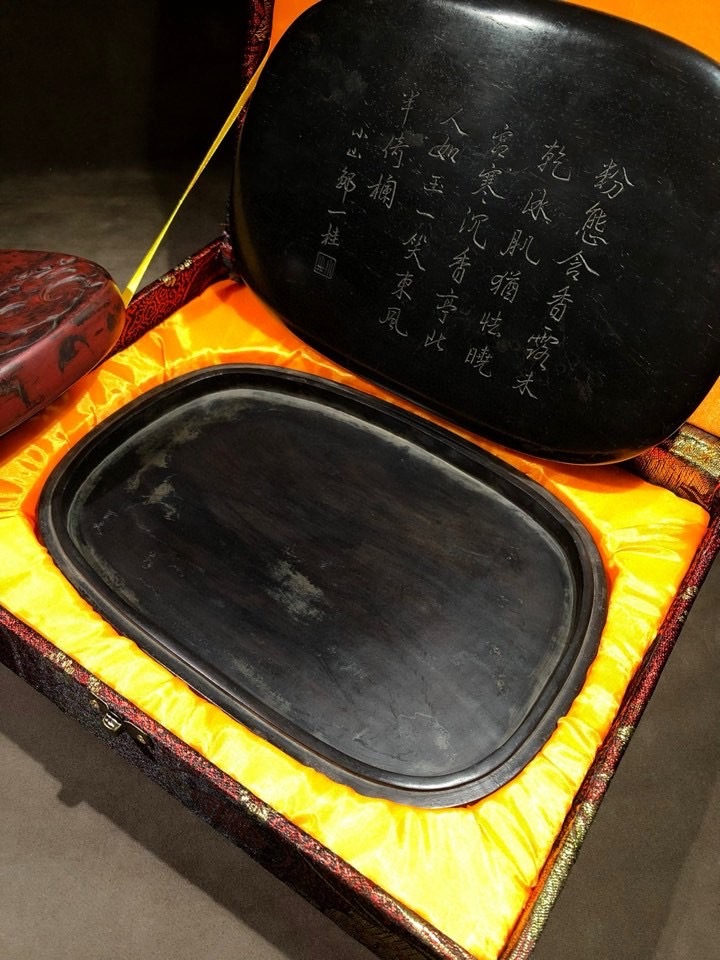 粉態含香露未
乾冰肌猶怯曉
宮寒沉香亭北
人如玉一笑東風
半倚欄
小山鄒一桂